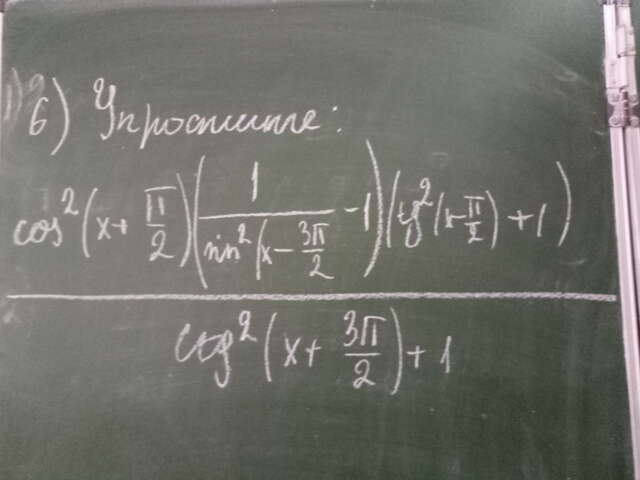 6) Упростите:
cos²(x+π/2)(1/sin²(x-3π/2)-1)(tg²(x-π/2)+1)
ctg²(x+3π/2)+1